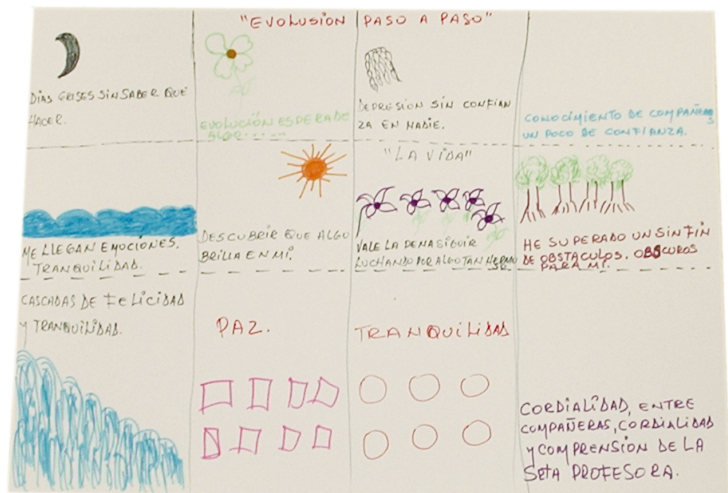 "EVOLUSION PASO A PASO"
DIAS GRISES SIN SABER QUE
HACER.
EVOLUCIÓN ESPERA DE
ALGO......
DEPRESION SIN CONFIAN
ZA EN NADIE.
CONOCIMIENTO DE COMPAÑERAS
UN POCO DE CONFIANZA.
ME LLEGAN EMOCIONES.
TRANQUILIDAD.
DESCUBRIR QUE ALGO
BRILLA EN MI.
"LA VIDA"
VALE LA PENA SEGUIR
LUCHANDO POR ALGO TAN HERMOSO
HE SUPERADO UN SIN FIN
DE OBSTACULOS. OBSCUROS
PARA MI.
CASCADAS DE FELICIDAD
Y TRANQUILIDAD.
PAZ.
TRANQUILIDAD
CORDIALIDAD, ENTRE
COMPAÑERAS, CORDIALIDAD
Y COMPRENSIÓN DE LA
SRTA PROFESORA.